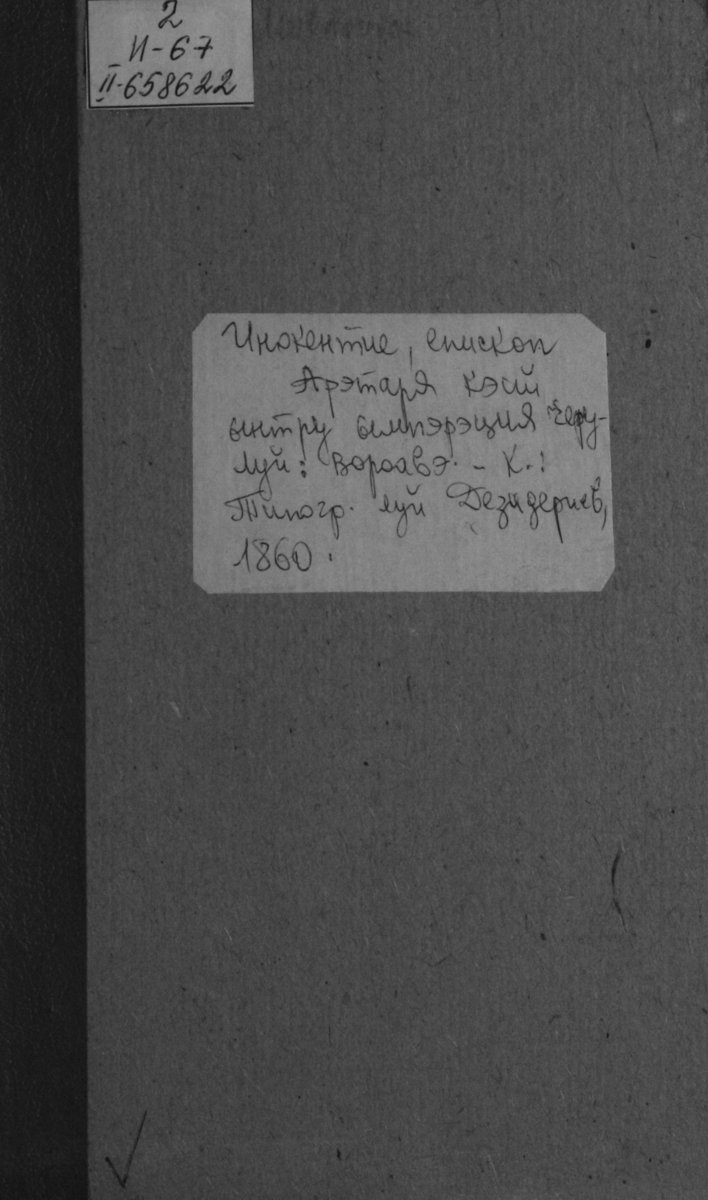 2
И-67
II-658622
Инокентие, епископ
Арэтаря кэий
ынтру ымпэрэция Черу-
луй: воровавэ. - К.:
Типогр. луй Дезидериев,
1860.